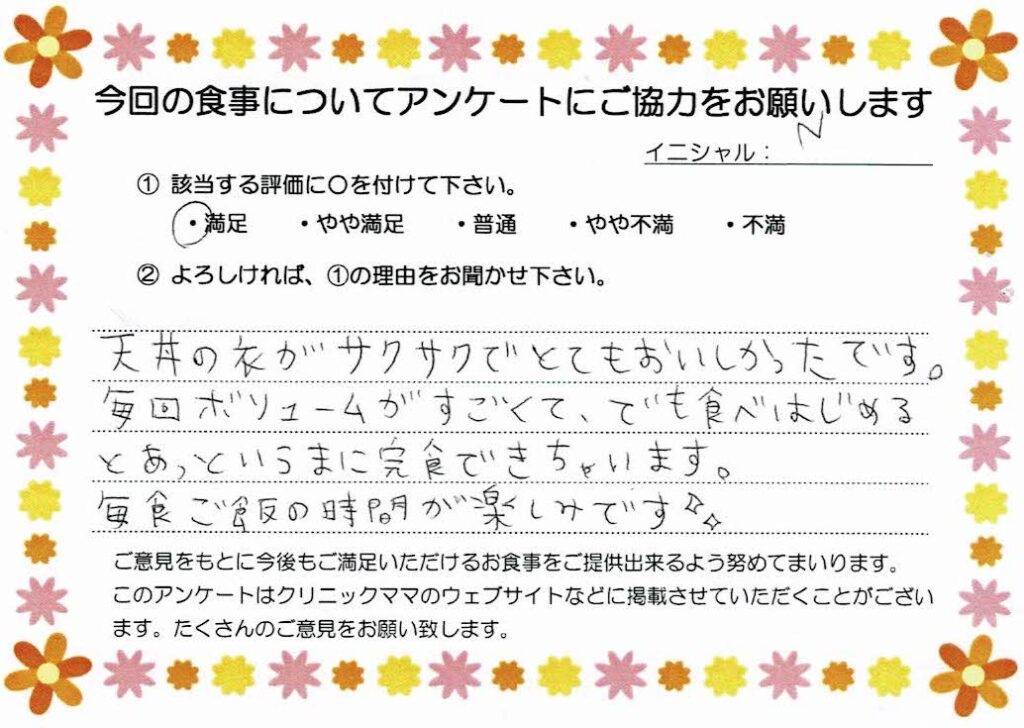 今回の食事についてアンケートにご協力をお願いします
イニシャル： N
① 該当する評価に〇を付けて下さい。
・満足 ・やや満足 ・普通 ・やや不満 ・不満
② よろしければ、①の理由をお聞かせ下さい。
天丼の衣がサクサクでとてもおいしかったです。
毎回ボリュームがすごくて、でも食べはじめる
とあっというまに完食できちゃいます。
毎食ご飯の時間が楽しみです
ご意見をもとに今後もご満足いただけるお食事をご提供出来るよう努めてまいります。
このアンケートはクリニックママのウェブサイトなどに掲載させていただくことがござい
ます。たくさんのご意見をお願い致します。